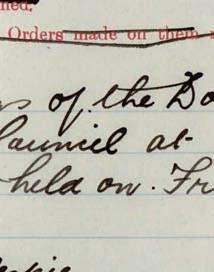 ned.
Orders made on them
of the Do
Council at
held on. Fr